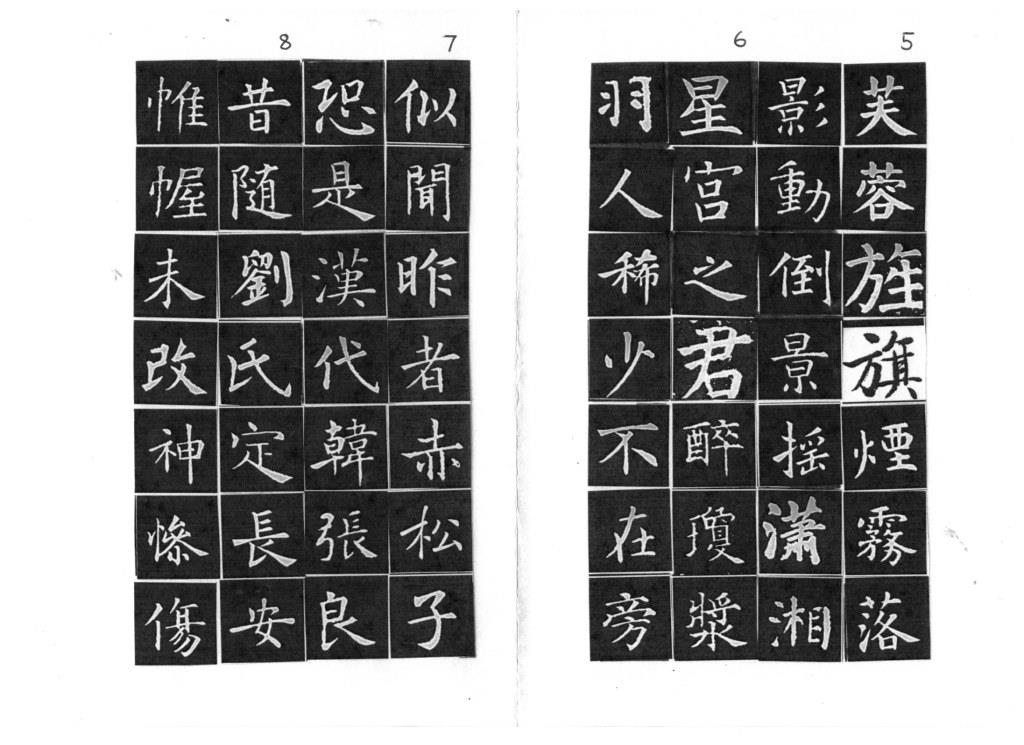 5
芙蓉旌旗煙霧落
影動倒景搖瀟湘
6
星宮之君醉瓊漿
羽人稀少不在旁
7
似聞昨者赤松子
恐是漢代韓張良
8
昔随劉氏定長安
帷幄未改神慘傷